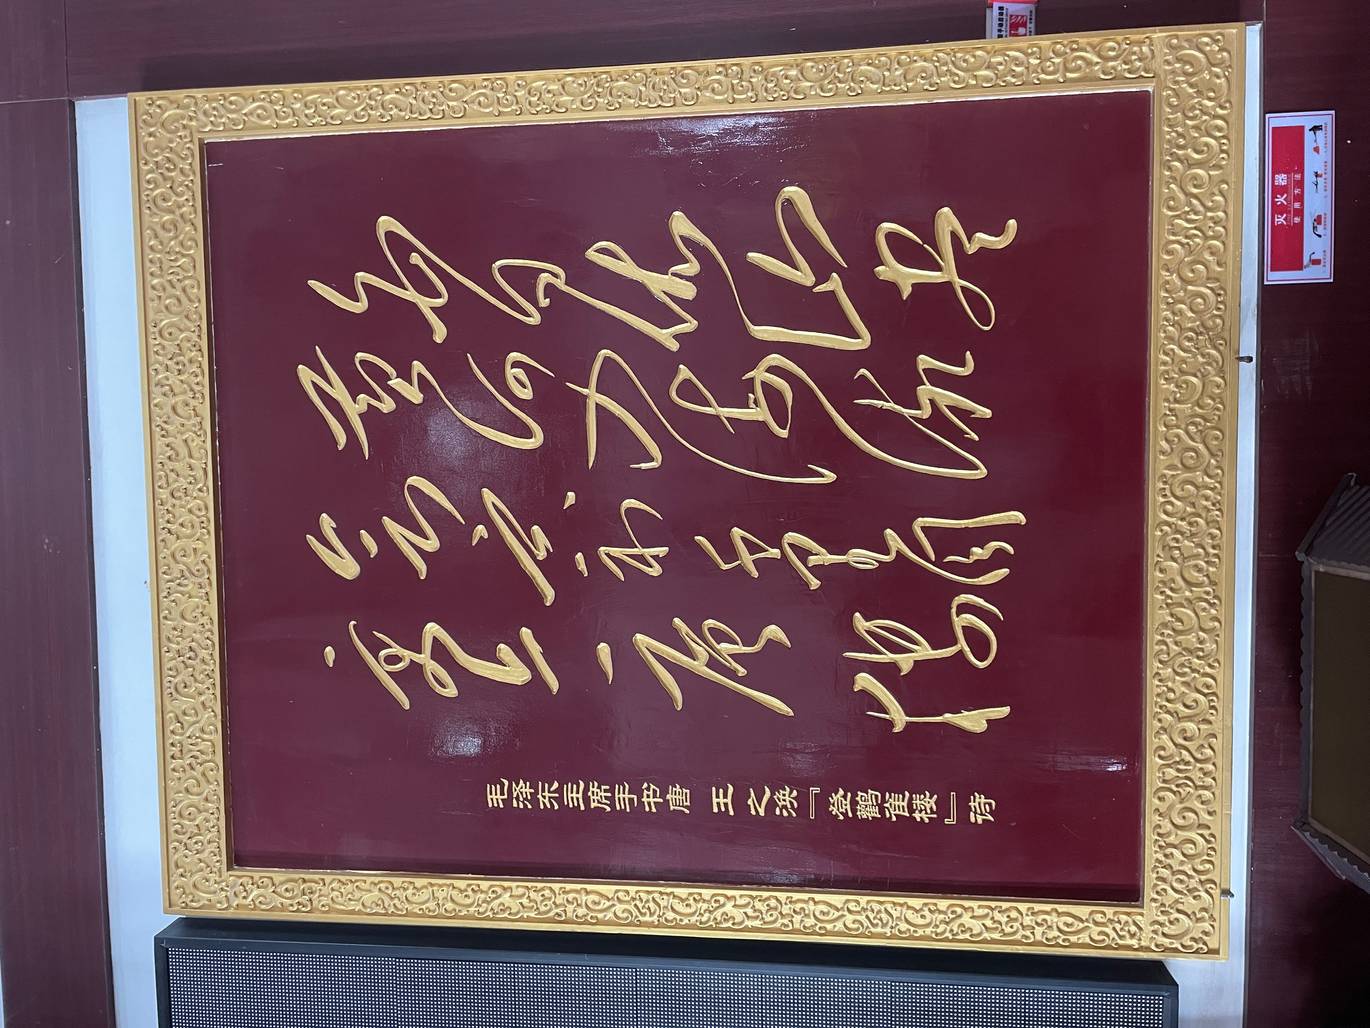 白日依山尽
黄河入海流
欲穷千里目
更上一层楼
毛泽东主席手书唐 王之涣『登鹳雀楼』诗
灭火器
使用方法